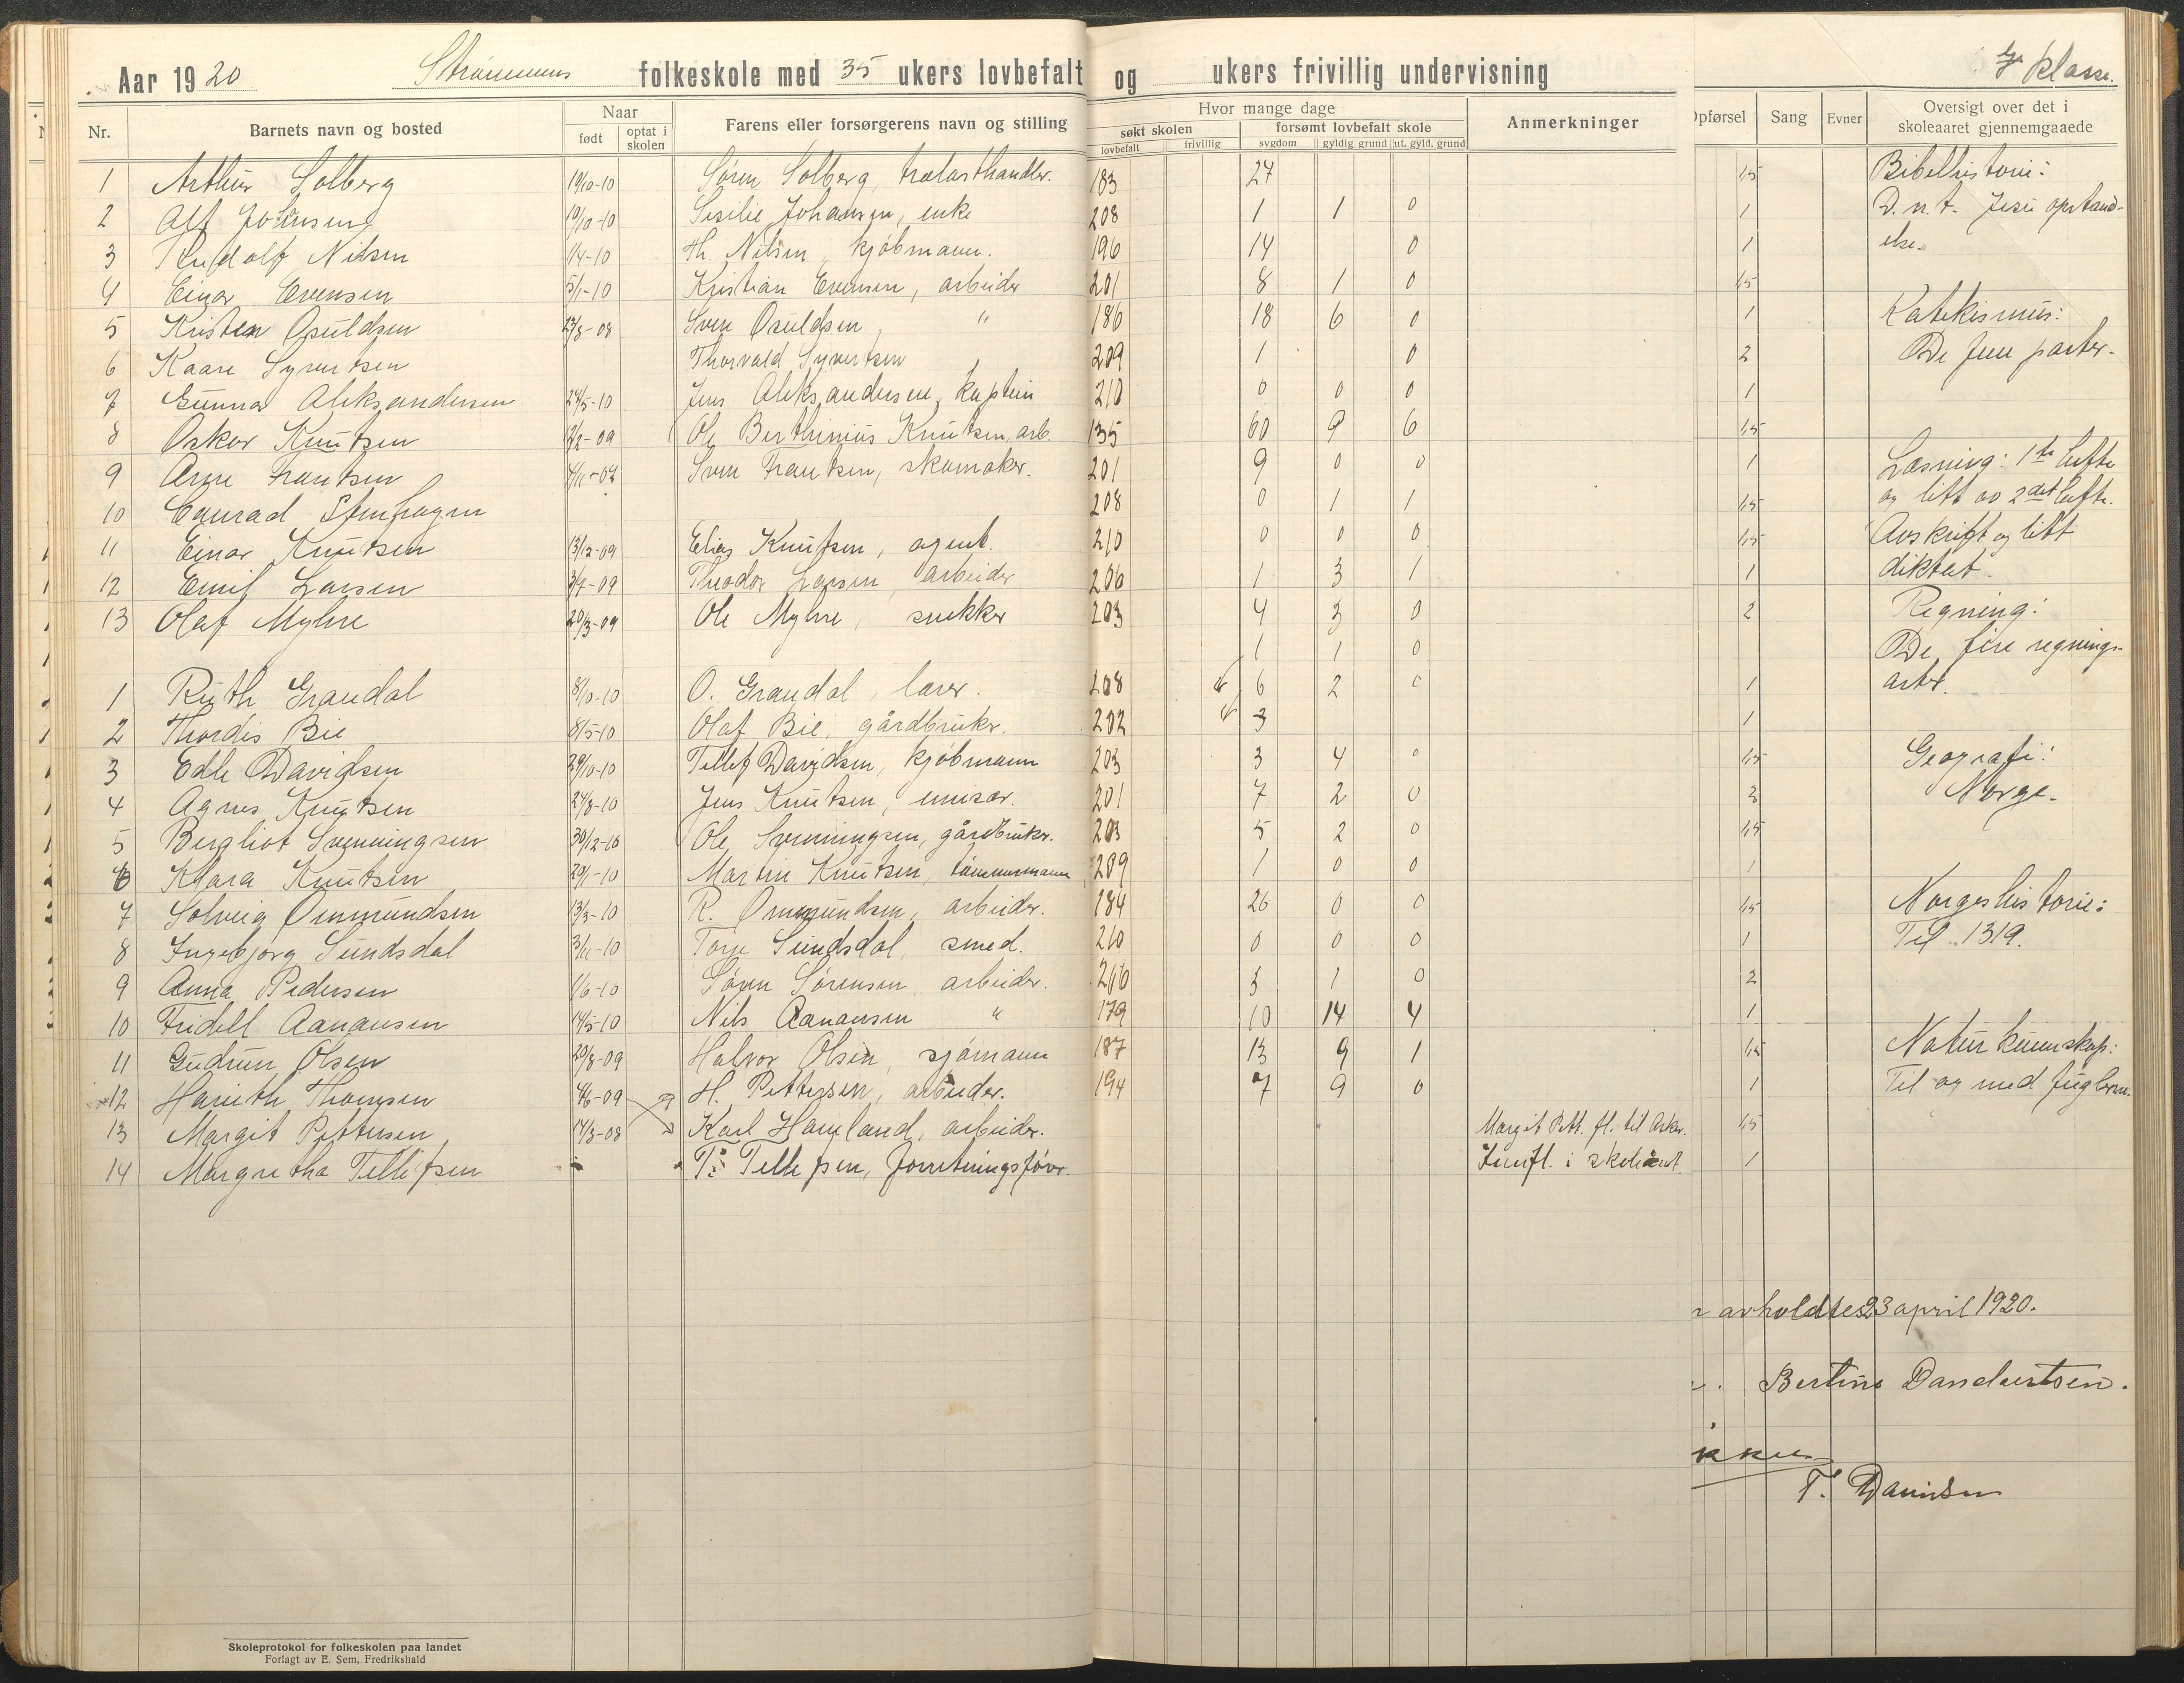 Aar 1920 Strømmens folkeskole med 35 ukers lovbefalt og ukers frivillig undervisning klasse.
Nr. Barnets navn og bosted Naar Farens eller forsørgerens navn og stilling Hvor mange dage Anmerkninger Opførsel Sang Evner Oversigt over det i skoleaaret gjennemgaaede
født optat i skolen søkt skolen forsømt lovbefalt skole
lovbefalt frivillig sygdom gyldig grund ut. gyld. grund
1 Arthur Solberg 19/10-10 Søren Solberg, trælasthandler. 183 27 1,5 Bibelhistorie:
2 Alf Johansen 10/10-10 Sesilie Johansen, enke 208 1 1 0 1 D. n. t. Jesu opstand-
3 Rudolf Nilsen 1/4-10 Th. Nilsen, kjøbmann. 196 14 0 1 else.
4 Einar Evensen 5/1-10 Kristian Evensen, arbeider 201 8 1 0 1,5
5 Kristen Osuldsen 23/8-08 Sven Osuldsen " 186 18 6 0 1 Katekismus:
6 Kaare Syvertsen Thorvald Syvertsen 209 1 0 2 De fem parter.
7 Gunnar Aleksandersen 24/5-10 Jens Aleksandersen, kaptein 210 0 0 0 1
8 Oskar Knutsen 2/2-09 Ole Berthinius Knutsen, arb. 135 60 9 6 1,5
9 Arne Frantsen 4/11-09 Sven Frantsen, skomaker. 201 9 0 0 1 Læsning: 1ste hefte
10 Conrad Stenhagen 208 0 1 1 1,5 og litt av 2det hefte.
11 Einar Knutsen 13/12-09 Elias Knutsen, agent. 210 0 0 0 1,5 Avskrift og litt
12 Emil Larsen 3/7-09 Theodor Larsen, arbeider 206 1 3 1 1 diktat.
13 Olaf Myhre 20/3-09 Ole Myhre, snekker 203 4 3 0 2 Regning:
1 1 0 De fire regnings-
1 Ruth Grandal 8/10-10 O. Grandal, lærer. 208 6 2 0 1 arter.
2 Thordis Bie 8/5-10 Olaf Bie, gårdbruker. 202 3 1
3 Edle Davidsen 29/10-10 Tellef Davidsen, kjøbmann 203 3 4 0 1,5 Geografi:
4 Agnes Knutsen 24/8-10 Jens Knutsen, emisær. 201 7 2 0 2 Norge.
5 Bergliot Svenningsen 30/12-10 Ole Svenningsen, gårdbruker. 203 5 2 0 1,5
6 Klara Knutsen 29/1-10 Martin Knutsen, tømmermann 209 1 0 0 1
7 Solveig Ommundsen 13/3-10 R. Ommundsen, arbeider. 184 26 0 0 1,5 Norgeshistorie:
8 Ingebjørg Sundsdal 3/11-10 Torje Sundsdal, smed. 210 0 0 0 1 Til 1319.
9 Anna Pedersen 1/6-10 Søren Sørensen, arbeider. 206 3 1 0 2
10 Fridell Aanansen 14/5-10 Nils Aanansen " 179 10 14 4 1
11 Gudrun Olsen 20/8-09 Halvor Olsen, sjømann 187 13 9 1 1,5 Naturkunnskap:
12 Harieth Thomsen 4/6-09 H. Pettersen, arbeider. 194 7 9 0 1 Til og med fuglerne.
13 Margit Pettersen 14/3-08 Karl Hameland, arbeider. Margit Pett. fl. til Asker. 1,5
14 Margretha Tellefsen T. Tellefsen, forretningsfører. Innfl. i skoleåret 1
avholdtes 23 april 1920.
Bertine Danielsen.
T. Davidsen
Skoleprotokol for folkeskolen paa landet
Forlagt av E. Sem, Fredrikshald